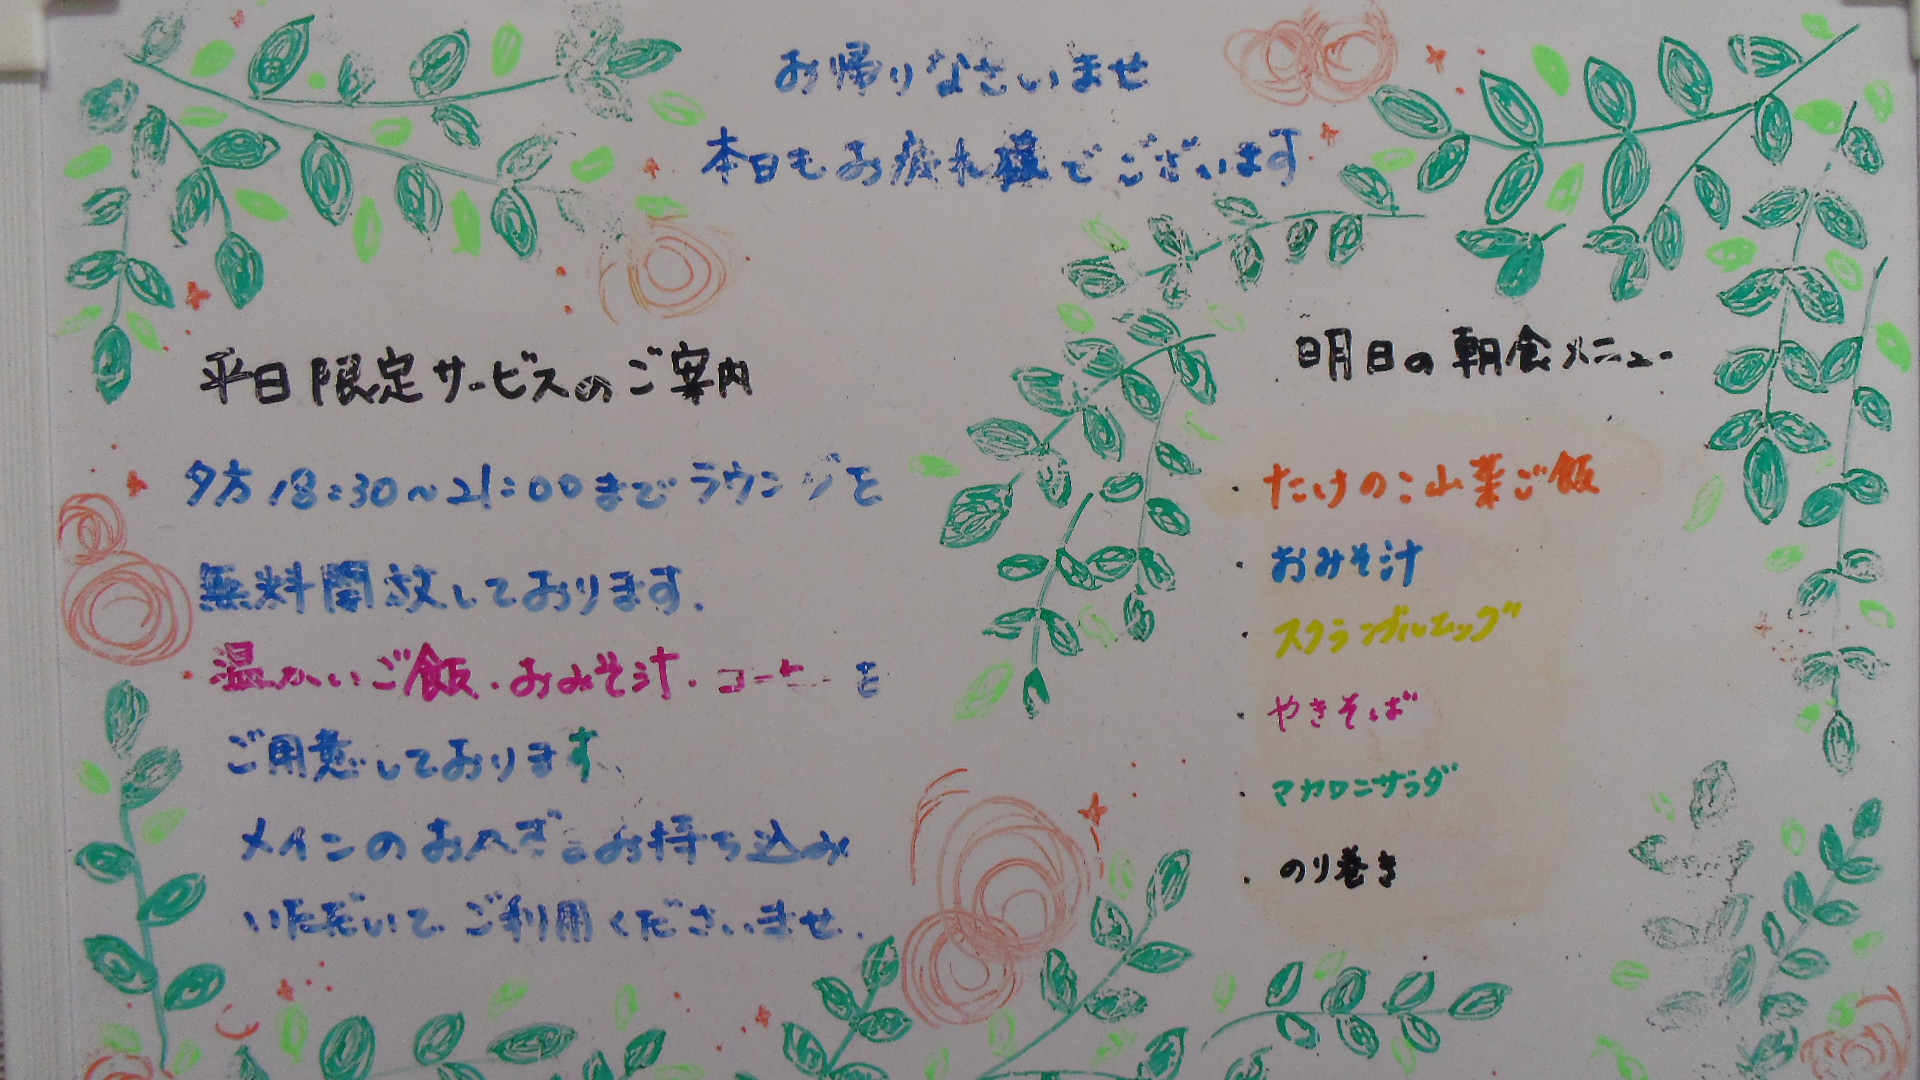 お帰りなさいませ
本日もお疲れ様でございます
平日限定サービスのご案内
夕方18:30～21:00までラウンジを
無料開放しております.
温かいご飯・おみそ汁・コーヒーを
ご用意しております、
メインのおかずをお持ち込み
いただいてご利用くださいませ.
明日の朝食メニュー
・たけのこ山菜ご飯
・おみそ汁
・スクランブルエッグ
・やきそば
・マカロニサラダ
・のり巻き